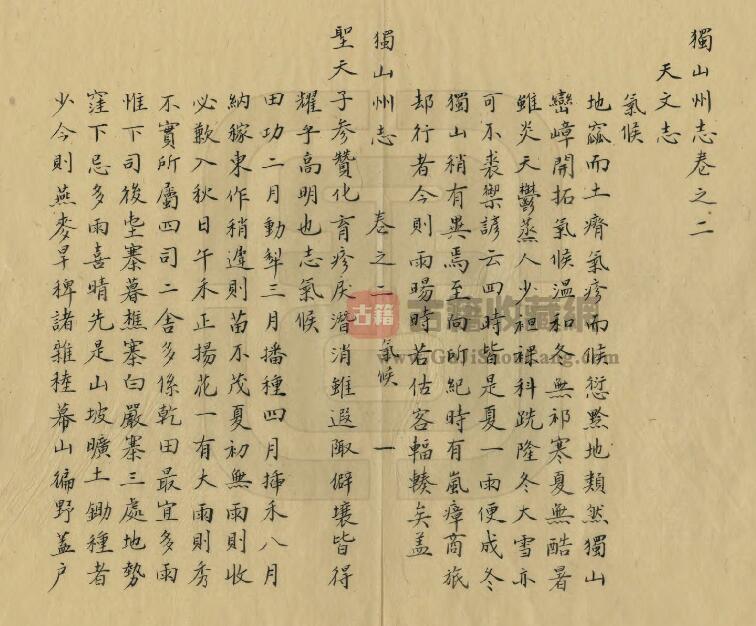 獨山州志卷之二
天文志
氣候
地窊而土瘠氣疹而候愆黔地類然獨山
巒嶂開拓氣候溫和冬無祁寒夏無酷暑
雖炎天鬱蒸人少袒裸科跣隆冬大雪亦
可不裘禦諺云四時皆是夏一雨便成冬
獨山稍有異焉至向所紀時有嵐瘴商旅
却行者今則雨暘時若估客輻輳矣蓋
獨山州志 卷之二 氣候 一
聖天子參贊化育疹戾潛消雖遐陬僻壤皆得
耀乎高明也志氣候
田功二月動犁三月播種四月插禾八月
納稼東作稍遲則苗不茂夏初無雨則收
必歉入秋日午禾正揚花一有大雨則秀
不實所屬四司二舍多係乾田最宜多雨
惟下司後坣寨暮樵寨白嚴寨三處地勢
窪下忌多雨喜晴先是山坡曠土鋤種者
少今則燕麥旱稗諸雜稑幕山徧野蓋戶
古籍
古籍收藏網
www.GuJiShouCang.com